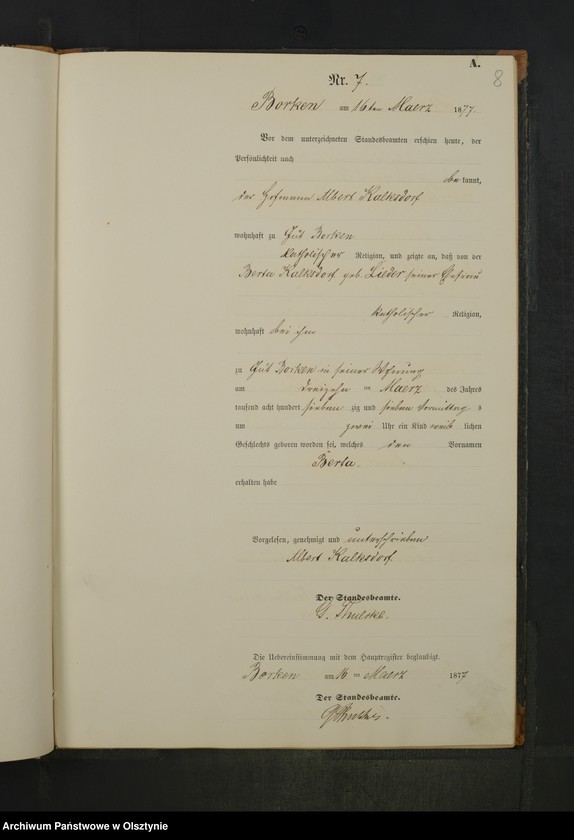 A.
8
Nr. 7.
Borken am 16ten Maerz 1877.
Vor dem unterzeichneten Standesbeamten erschien heute, der
Persönlichkeit nach
bekannt,
der Hofmann Albert Kalksdorf
wohnhaft zu Gut Borken
katholischer Religion, und zeigte an, daß von der
Berta Kalksdorf geb. Lieder seiner Ehefrau
katholischer Religion,
wohnhaft bei ihm
zu Gut Borken in seiner Wohnung
am dreizehn ten Maerz des Jahres
tausend acht hundert sieben zig und sieben Vormittag s
um zwei Uhr ein Kind weib lichen
Geschlechts geboren worden sei, welches den Vornamen
Berta.
erhalten habe
Vorgelesen, genehmigt und unterschrieben
Albert Kalksdorf.
Der Standesbeamte.
G.
Die Uebereinstimmung mit dem Hauptregister beglaubigt.
Borken am 16 ten Maerz 1877
Der Standesbeamte.
Archiwum Państwowe w Olsztynie